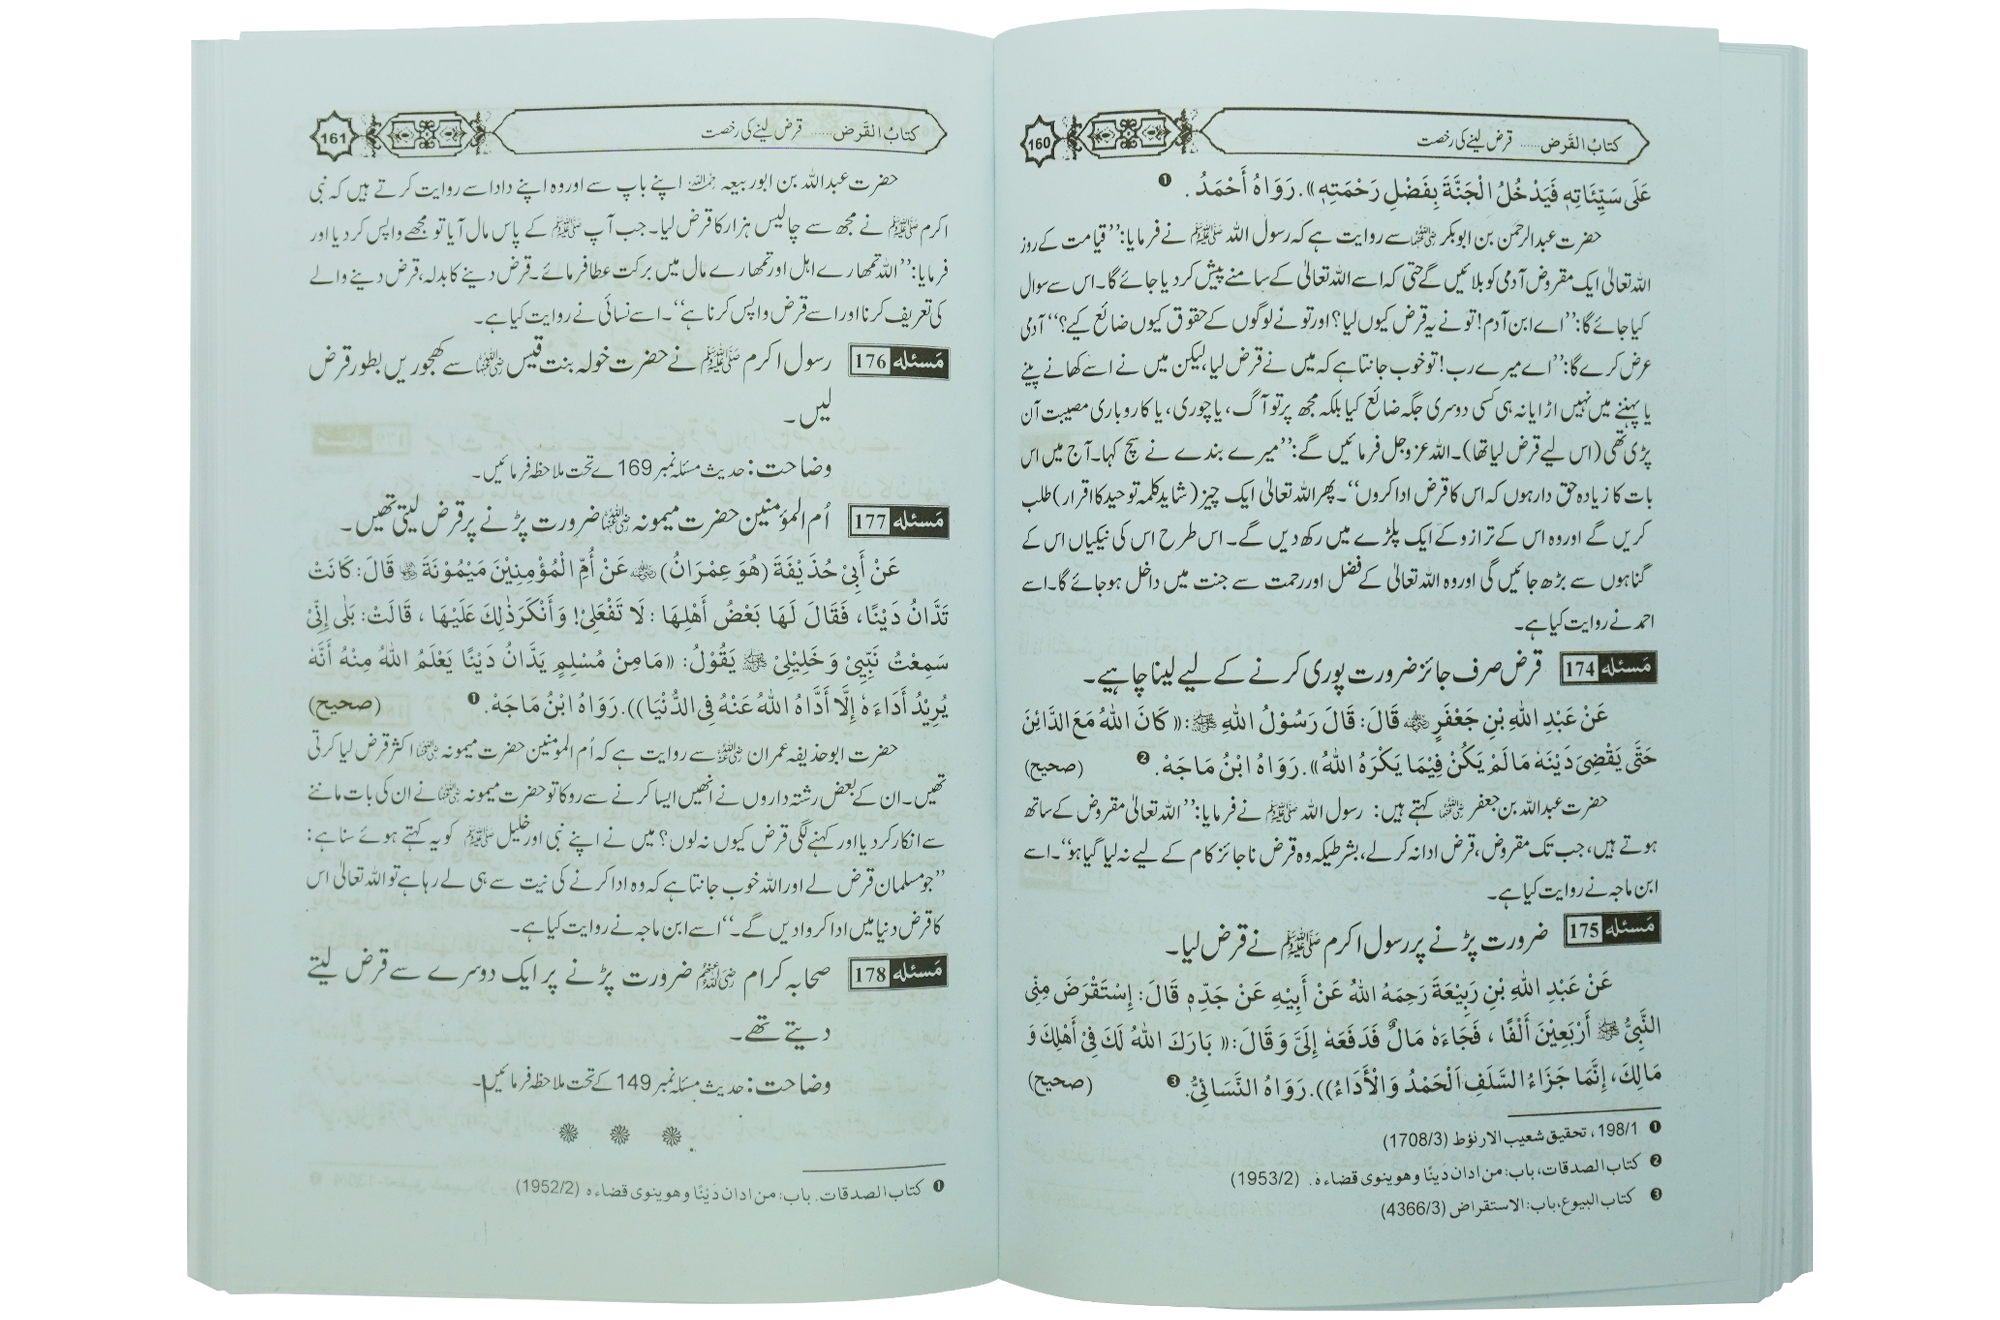 کتابُ القَرض ...... قرض لینے کی رخصت
160
عَلَی سَیِّئَاتِهٖ فَیَدْخُلُ الْجَنَّةَ بِفَضْلِ رَحْمَتِهٖ)). رَوَاهُ أَحْمَدُ . ❶
حضرت عبدالرحمٰن بن ابوبکر رضی اللہ عنہما سے روایت ہے کہ رسول اللہ ﷺ نے فرمایا: ’’قیامت کے روز
اللہ تعالیٰ ایک مقروض آدمی کو بلائیں گے حتی کہ اسے اللہ تعالیٰ کے سامنے پیش کر دیا جائے گا۔ اس سے سوال
کیا جائے گا: ’’اے ابن آدم! تو نے یہ قرض کیوں لیا؟ اور تو نے لوگوں کے حقوق کیوں ضائع کیے؟‘‘ آدمی
عرض کرے گا: ’’اے میرے رب! تو خوب جانتا ہے کہ میں نے قرض لیا، لیکن میں نے اسے کھانے پینے
یا پہننے میں نہیں اڑایا نہ ہی کسی دوسری جگہ ضائع کیا بلکہ مجھ پر تو آگ، یا چوری، یا کاروباری مصیبت آن
پڑی تھی (اس لیے قرض لیا تھا)۔ اللہ عزوجل فرمائیں گے: ’’میرے بندے نے سچ کہا۔ آج میں اس
بات کا زیادہ حق دار ہوں کہ اس کا قرض ادا کروں‘‘۔ پھر اللہ تعالیٰ ایک چیز (شاید کلمہ توحید کا اقرار) طلب
کریں گے اور وہ اس کے ترازو کے ایک پلڑے میں رکھ دیں گے۔ اس طرح اس کی نیکیاں اس کے
گناہوں سے بڑھ جائیں گی اور وہ اللہ تعالیٰ کے فضل اور رحمت سے جنت میں داخل ہو جائے گا۔ اسے
احمد نے روایت کیا ہے۔
مَسئله 174 قرض صرف جائز ضرورت پوری کرنے کے لیے لینا چاہیے۔
عَنْ عَبْدِ اللّٰهِ بْنِ جَعْفَرٍ رضی اللہ عنہ قَالَ: قَالَ رَسُوْلُ اللّٰهِ ﷺ: (( کَانَ اللّٰهُ مَعَ الدَّائِنِ
حَتَّی یَقْضِیَ دَیْنَهٗ مَا لَمْ یَکُنْ فِیْمَا یَکْرَهُ اللّٰهُ )). رَوَاهُ ابْنُ مَاجَهْ. ❷ (صحیح)
حضرت عبداللہ بن جعفر رضی اللہ عنہما کہتے ہیں: رسول اللہ ﷺ نے فرمایا: ’’اللہ تعالیٰ مقروض کے ساتھ
ہوتے ہیں، جب تک مقروض، قرض ادا نہ کر لے، بشرطیکہ وہ قرض ناجائز کام کے لیے نہ لیا گیا ہو‘‘۔ اسے
ابن ماجہ نے روایت کیا ہے۔
مَسئله 175 ضرورت پڑنے پر رسول اکرم ﷺ نے قرض لیا۔
عَنْ عَبْدِ اللّٰهِ بْنِ رَبِیْعَةَ رَحِمَهُ اللّٰهُ عَنْ أَبِیْهِ عَنْ جَدِّهٖ قَالَ: إِسْتَقْرَضَ مِنِّی
النَّبِیُّ ﷺ أَرْبَعِیْنَ أَلْفًا ، فَجَاءَهٗ مَالٌ فَدَفَعَهٗ إِلَیَّ وَ قَالَ: (( بَارَكَ اللّٰهُ لَكَ فِیْ أَهْلِكَ وَ
مَالِكَ، إِنَّمَا جَزَاءُ السَّلَفِ اَلْحَمْدُ وَالْأَدَاءُ)). رَوَاهُ النَّسَائِیُّ. ❸ (صحیح)
❶ 198/1، تحقیق شعیب الارنؤط (1708/3)
❷ کتاب الصدقات، باب: من ادان دَینًا وهو ینوی قضاءه. (1953/2)
❸ کتاب البیوع، باب: الاستقراض (4366/3)
کتابُ القَرض ...... قرض لینے کی رخصت
161
حضرت عبداللہ بن ابو ربیعہ رحمہ اللہ اپنے باپ سے اور وہ اپنے دادا سے روایت کرتے ہیں کہ نبی
اکرم ﷺ نے مجھ سے چالیس ہزار کا قرض لیا۔ جب آپ ﷺ کے پاس مال آیا تو مجھے واپس کر دیا اور
فرمایا: ’’اللہ تمھارے اہل اور تمھارے مال میں برکت عطا فرمائے۔ قرض دینے کا بدلہ، قرض دینے والے
کی تعریف کرنا اور اسے قرض واپس کرنا ہے‘‘۔ اسے نسائی نے روایت کیا ہے۔
مَسئله 176 رسول اکرم ﷺ نے حضرت خولہ بنت قیس رضی اللہ عنہا سے کھجوریں بطور قرض
لیں۔
وضاحت: حدیث مسئلہ نمبر 169 ے تحت ملاحظہ فرمائیں۔
مَسئله 177 اُم المؤمنین حضرت میمونہ رضی اللہ عنہا ضرورت پڑنے پر قرض لیتی تھیں۔
عَنْ أَبِیْ حُذَیْفَةَ (هُوَ عِمْرَانُ) رضی اللہ عنہ عَنْ أُمِّ الْمُؤْمِنِیْنَ مَیْمُوْنَةَ رضی اللہ عنہا قَالَ: کَانَتْ
تَدَّانُ دَیْنًا، فَقَالَ لَهَا بَعْضُ أَهْلِهَا : لَا تَفْعَلِیْ! وَأَنْکَرَ ذٰلِكَ عَلَیْهَا ، قَالَتْ: بَلٰی إِنِّیْ
سَمِعْتُ نَبِّیِیْ وَ خَلِیْلِیْ ﷺ یَقُوْلُ: (( مَا مِنْ مُسْلِمٍ یَدَّانُ دَیْنًا یَعْلَمُ اللّٰهُ مِنْهُ أَنَّهٗ
یُرِیْدُ أَدَاءَهٗ إِلَّا أَدَّاهُ اللّٰهُ عَنْهُ فِی الدُّنْیَا)). رَوَاهُ ابْنُ مَاجَهْ. ❶ (صحیح)
حضرت ابوحذیفہ عمران رضی اللہ عنہ سے روایت ہے کہ اُم المؤمنین حضرت میمونہ رضی اللہ عنہا اکثر قرض لیا کرتی
تھیں۔ ان کے بعض رشتہ داروں نے انھیں ایسا کرنے سے روکا تو حضرت میمونہ رضی اللہ عنہا نے ان کی بات ماننے
سے انکار کر دیا اور کہنے لگی قرض کیوں نہ لوں؟ میں نے اپنے نبی اور خلیل ﷺ کو یہ کہتے ہوئے سنا ہے:
’’جو مسلمان قرض لے اور اللہ خوب جانتا ہے کہ وہ ادا کرنے کی نیت سے ہی لے رہا ہے تو اللہ تعالیٰ اس
کا قرض دنیا میں ادا کروا دیں گے۔‘‘ اسے ابن ماجہ نے روایت کیا ہے۔
مَسئله 178 صحابہ کرام رضی اللہ عنہم ضرورت پڑنے پر ایک دوسرے سے قرض لیتے
دیتے تھے۔
وضاحت: حدیث مسئلہ نمبر 149 کے تحت ملاحظہ فرمائیں۔
❶ کتاب الصدقات. باب: من ادان دَیْنًا وهو ینوی قضاءه (1952/2)